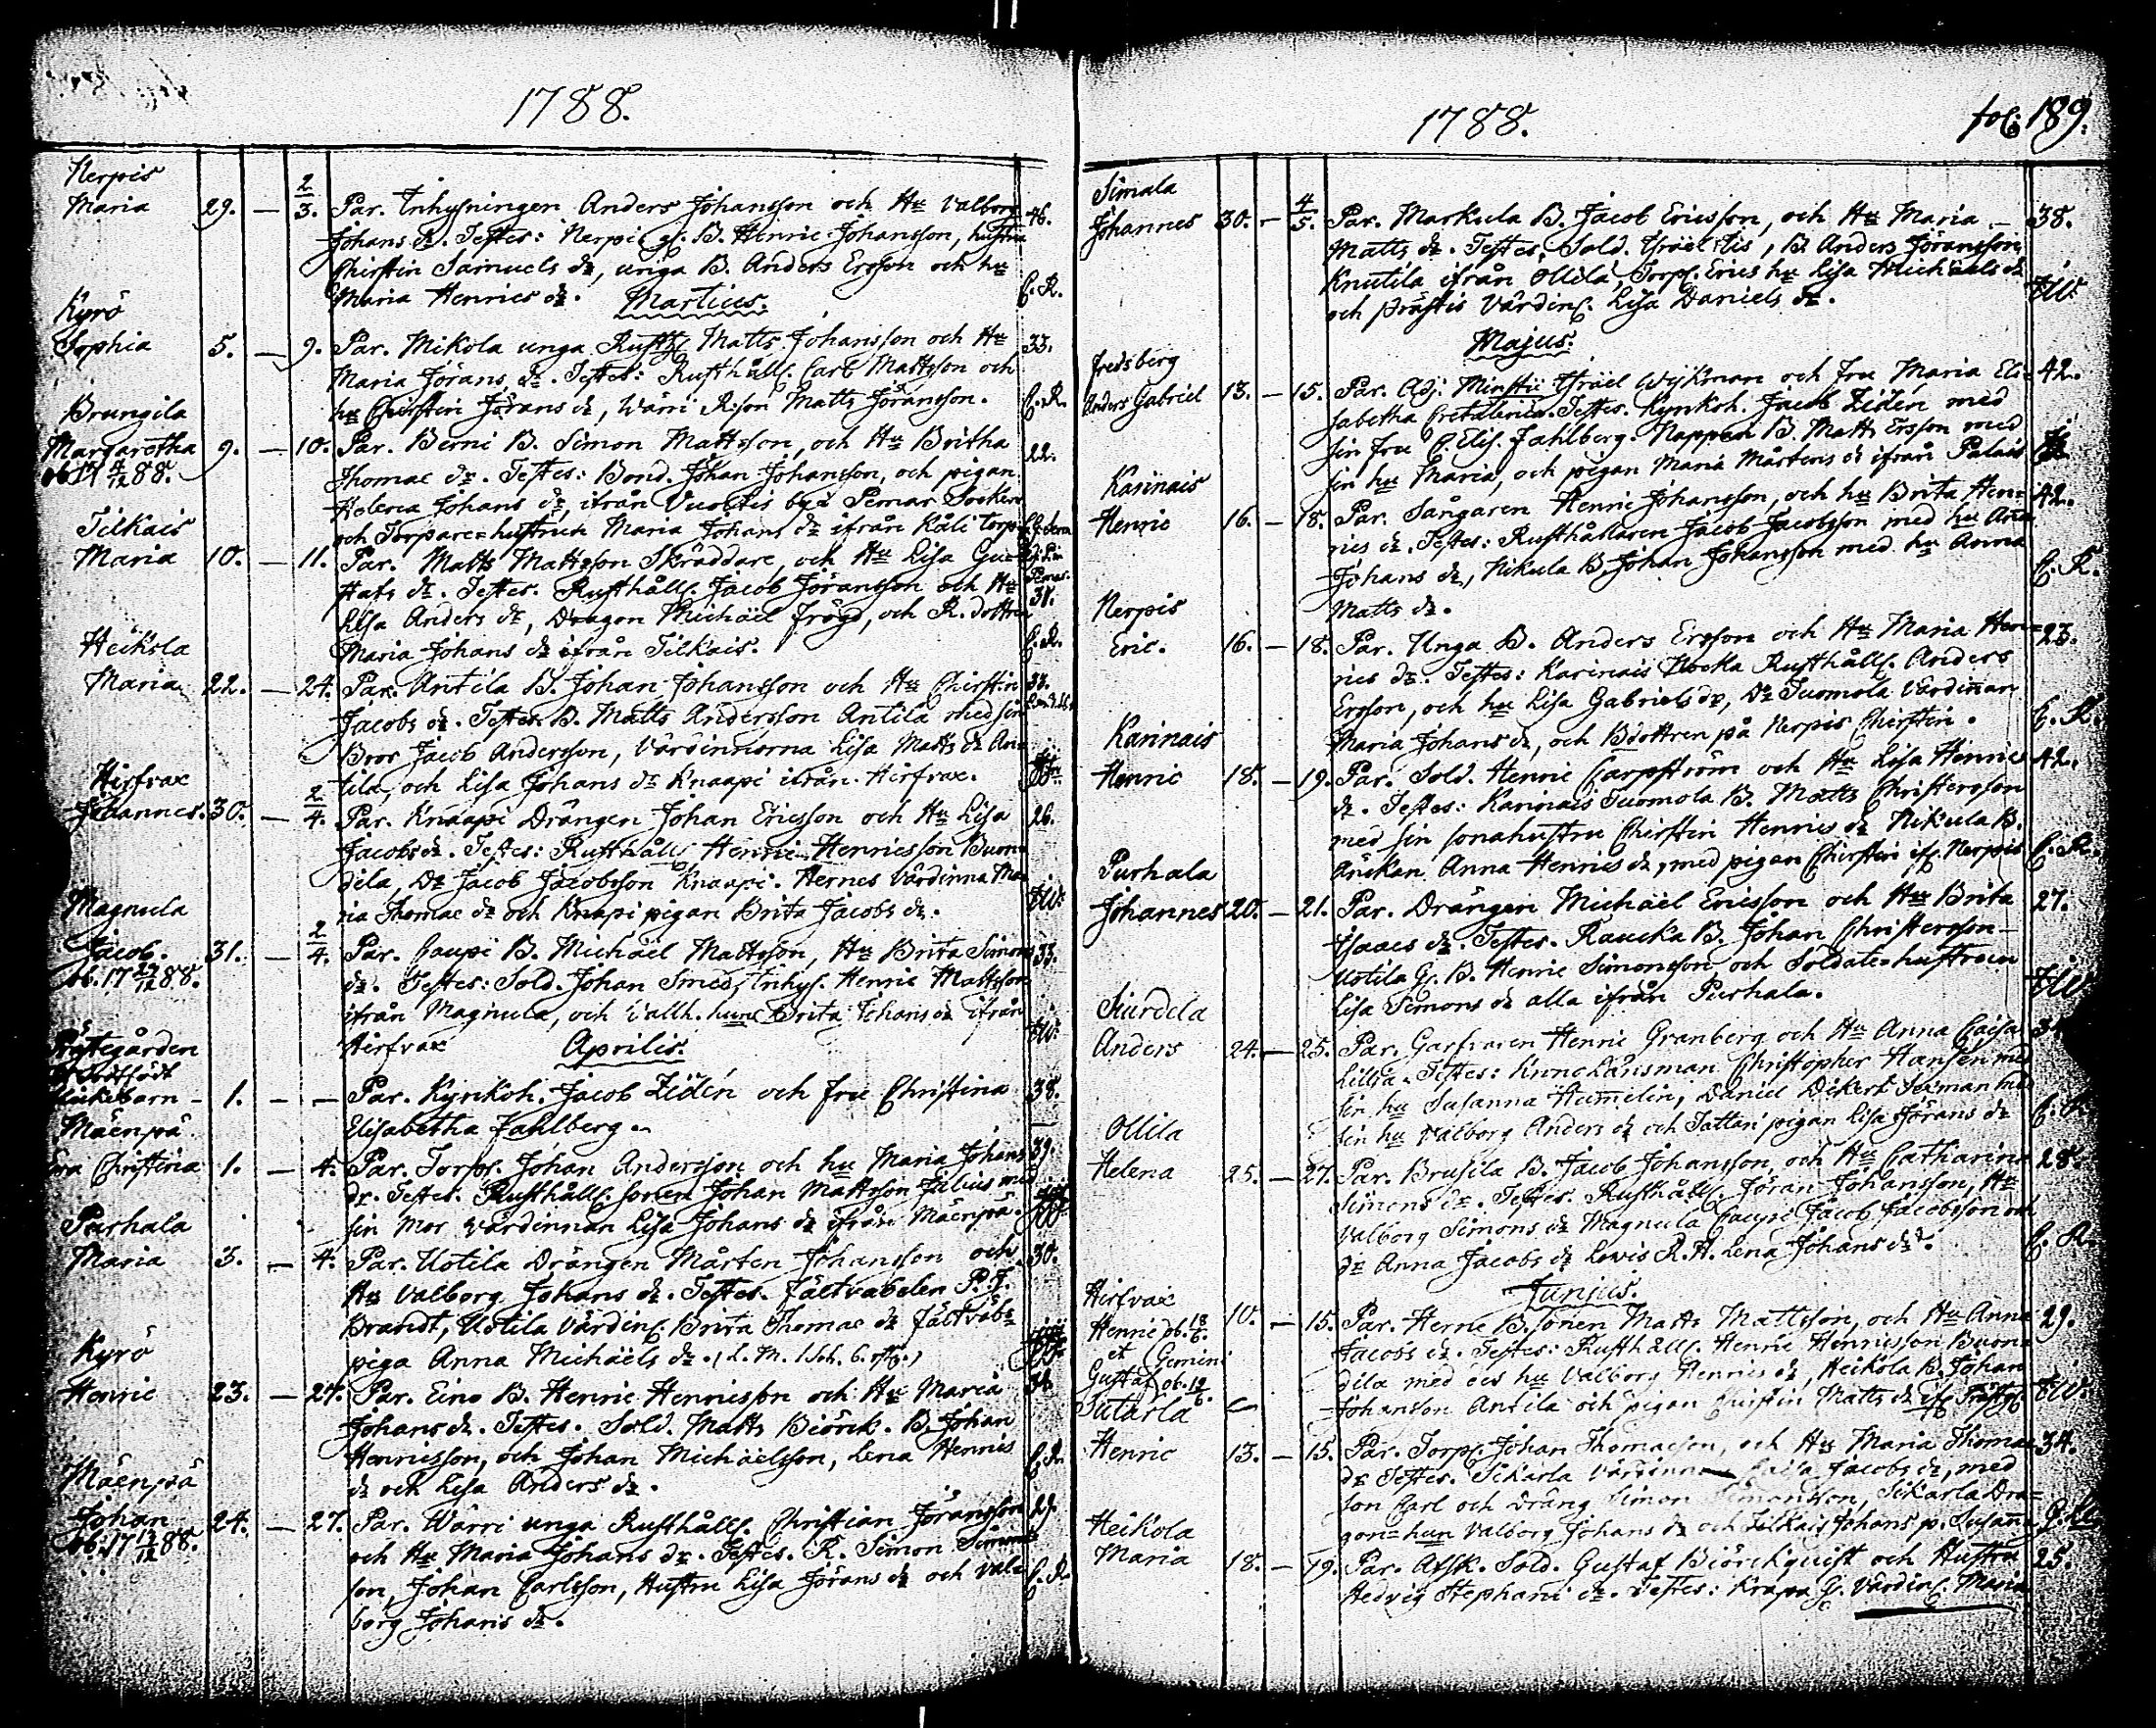 1788.
Nerpis
Maria 29. — 2/3. Par. Inhysningen Anders Johansson och Hu Valborg 46.
Johans dr. Testes: Nerpis gl. B. Henric Johansson, hustru
Chirstin Samuels dr, unga B. Anders Ersson och hu
Maria Henrics dr. C. R.
Martius.
Kyrö
Sophia 5. — 9. Par. Mikola unga Rusth Matts Johansson och Hu 33.
Maria Jörans dr. Testes: Rusthåll. Carl Mattsson och
hu Chirstin Jörans dr, Wärri R.son Matts Jöransson. C. R.
Brungila
Margaretha 9. — 10. Par. Berni B. Simon Mattsson, och Hu Britha 22.
ob. 17 88.
Thomae dr. Testes: Bond. Johan Johansson, och pigan
Helena Johans dr, ifrån Vuoltis by i Pemar Sockn
och Torpare=hustrun Maria Johans dr ifrån Käli torp
Tilkais
Maria 10. — 11. Par. Matts Mattsson Skräddare, och Hu Lisa Gu=
stafs dr. Testes. Rusthåll. Jacob Jöransson och Hu 31.
Lisa Anders dr, Dragon Michäel Frögd, och R. dottren
Maria Johans dr ifrån Tilkais. C. R.
Heikola
Maria 22. — 24. Par. Antila B. Johan Johansson och Hu Chirstin 33.
Jacobs dr. Testes. B. Matts Andersson Antila med sin
Bror Jacob Andersson, Värdinnorna Lisa Matts dr An=
tila, och Lisa Johans dr Knaapi ifrån Hirfvax.
Hirfvax
Johannes. 30. — 2/4. Par. Knaapi Drängen Johan Ericsson och Hu Lisa 26.
Jacobs dr. Testes: Rusthåll. Henric Henricsson Buon=
dila, Dr Jacob Jacobsson Knaapi. Hernes Värdinna Ma=
ria Thomae dr och Knapi pigan Brita Jacobs dr. IW.
Magnula
Jacob. 31. — 2/4. Par. Caupi B. Michäel Mattsson, Hu Brita Simons 33.
ob. 17 27/12 88.
dr. Testes: Sold. Johan Smed, Inhys. Henric Mattsson
ifrån Magnula, och Vallh. hun Brita Johans dr ifrån
Hirfvax IW.
Aprilis.
Prästegården
dödfödt
flickebarn — 1. — — Par. Kyrkoh. Jacob Zidén och fru Christina 38.
Elisabetha Fahlberg.
Mäenpä
Christina 1. — 4. Par. Torp. Johan Andersson och hu Maria Johans 39.
dr. Testes. Rusthåll. sonen Johan Mattsson Julius med
sin Mor värdinnan Lisa Johans dr ifrån Mäenpä.
Purhala
Maria 3. — 4. Par. Uotila Drängen Mårten Johansson och 30.
Hu Valborg Johans dr. Testes. Fältväbelen P. J.
Brandt, Uotila värdin. Brita Thomae dr Fältväb=
piga Anna Michäels dr.
Kyrö
Henric 23. — 24. Par. Eino B. Henric Henricsson och Hu Maria
Johans dr. Testes. Sold. Matts Biörck. B. Johan
Henricsson, och Johan Michäelsson, Lena Henrics
dr och Lisa Anders dr. C. R.
Mäenpä
Johan 24. — 27. Par. Wärri unga Rusthåll. Christian Jöransson 29.
ob. 17 88.
och Hu Maria Johans dr. Testes. R. Simon Simons=
son, Johan Carlsson, Hustru Lisa Jörans dr och Val= C. R.
borg Johans dr.
1788. fol: 189.
Simala
Johannes 30. — 4/5. Par. Markula B. Jacob Ericsson, och Hu Maria — 38.
Matts dr. Testes, Sold. Israel Lis, B. Anders Jöransson
Knutila ifrån Ollila, Torp. Erics hu Lisa Michäels dr
och prästis värdin. Lisa Daniels dr. IW.
Majus.
Fredsberg
Anders Gabriel 13. — 15. Par. Adj. Minstii Israel Wijkman och fru Maria Eli= 42.
sabetha Cretalenia. Testes. Kyrkoh. Jacob Zidén med
sin fru C. Elis. Fahlberg. Nappen B. Matts Ersson med
sin hu Maria, och pigan Maria Mårtens dr ifrån Palais
Karinais
Henric 16. — 18. Par. Sångaren Henric Johansson, och hu Brita Hen= 42.
rics dr. Testes: Rusthållaren Jacob Jacobsson med hu Anna
Johans dr, Nikula B. Johan Johansson med hu Anna
Matts dr. C. R.
Nerpis
Eric. 16. — 18. Par. Unga B. Anders Ersson och Hu Maria Hen= 23.
rics dr. Testes: Karinais Nocka Rusthåll. Anders
Ersson, och hu Lisa Gabriels dr, Dr Tuomola Värdinnan
Maria Johans dr, och B.dottren på Nerpis Chirstin. C. R.
Karinais
Henric 18. — 19. Par. Sold. Henric Carpström och Hu Lisa Henrics 42.
dr. Testes: Karinais Tuomola B. Matts Christersson
med sin sonahustru Chirstin Henrics dr Nikula B.
Änckan Anna Henrics dr, med pigan Chirstin if. Nerpis C. R.
Purhala
Johannes 20. — 21. Par. Drängen Michäel Ericsson och Hu Brita 27.
Isaacs dr. Testes. Raucka B. Johan Christersson
Uotila G. B. Henric Simonsson, och Soldate=hustrun
Lisa Simons dr alla ifrån Purhala. IW
Siurdela
Anders 24. — 25. Par. Garfvaren Henric Granberg och Hu Anna Caisa
Lillja. Testes: Krono Länsman Christopher Hansén med
sin hu Susanna Humelin, Daniel Dikert Sexman med
sin hu Valborg Anders dr och Tattari pigan Lisa Jörans dr
Ollila
Helena 25. — 27. Par. Brusila B. Jacob Johansson, och Hu Catharina 28.
Simons dr. Testes. Rusthåll. Jöran Johansson, Hu
Valborg Simons dr Magnula Caupi Jacob Jacobsson och
dr Anna Jacobs dr Lewis R. H. Lena Johans dr. C. R.
Junius.
Hirfvax
Henric ob. 18/6. 10. — 15. Par. Herne B. Sonen Matts Mattsson, och Hu Anna 29.
et Gemini
Gustaf ob. 19/6.
Jacobs dr. Testes: Rusthåll. Henric Henricsson Buon=
dila med des hu Valborg Henrics dr, Heikola B. Johan
Johansson Antila och pigan Chirstin Matts dr IW.
Sutarla
Henric 13. — 15. Par. Torp. Johan Thomasson, och Hu Maria Thomae 34.
dr Testes. Sikarla värdinnan Caisa Jacobs dr, med
son Carl och dräng Simon Simonsson, Sikarla Dra=
gon=hun Valborg Johans dr och Tilkais Johans p. Susanna
Heikola
Maria 18. — 19. Par. Afsk. Sold. Gustaf Biörckquist och Hustru 25.
Hedvig Stephani dr. Testes: Krapa G. Värdin. Maria